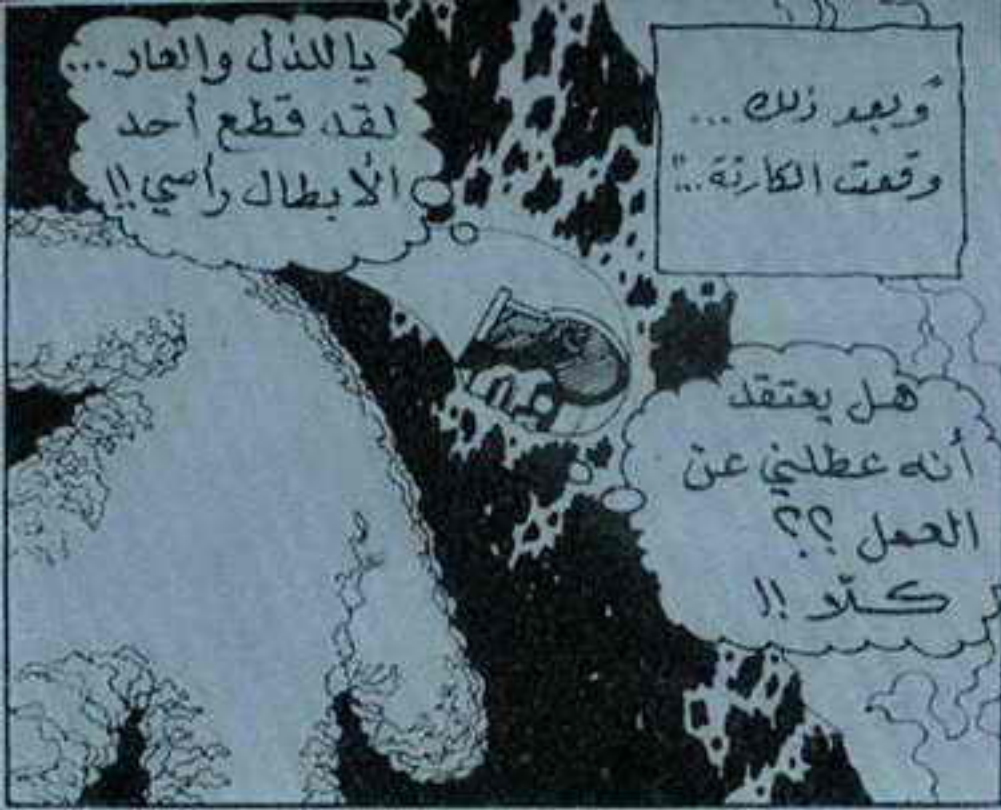 "وبعد ذلك...
وقعت الكارثة..."
ياللذل والعار...
لقد قطع أحد
الأبطال رأسي!!
هل يعتقد
أنه عطلني عن
العمل ؟؟
كلّا !!